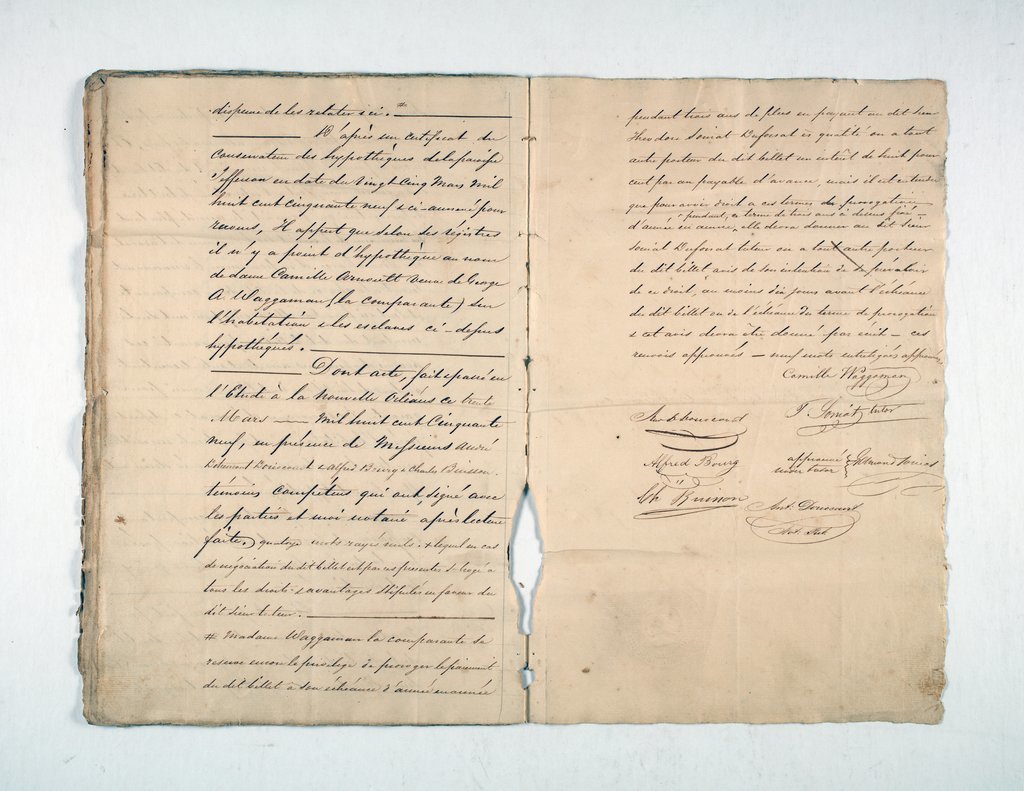 dispense de les relater ici. #
D'après un certificat du
Conservateur des hypothèques de la paroisse
Jefferson en date du Vingt Cinq Mars mil
huit cent cinquante neuf & ci-annexé pour
recours, Il appert que selon des régistres
il n'y a point d'hypothèque au nom
de dame Camille Arnoult veuve de George
A. Waggaman (la comparante) sur
l'habitation & les esclaves ci-dessus
hypothéqués.
Dont acte, fait & passé en
l'Etude à la Nouvelle Orléans ce trente
Mars mil huit cent Cinquante
neuf, en présence de Messieurs André
Doriocourt & Alfred Bourg & Charles Buisson
témoins compétens qui ont signé avec
les parties et moi notaire après lecture
faite. quatorze mots rayés nuls. & lequel en cas
de négociation du dit billet est par ces présentes subrogé à
tous les droits & avantages stipulés en faveur du
dit sieur tuteur.
# Madame Waggaman la comparante se
reserve encore le privilege de proroger le paiement
du dit billet à son échéance d'année en année
pendant trois ans de plus en payant au dit Sieur
Theodore Soniat Dufossat ès qualité ou à tout
autre porteur du dit billet un intérêt de huit pour
cent par an payable d'avance, mais il est entendu
que pour avoir droit à ces termes de prorogation
pendant ce terme de trois ans ci dessus fixé
d'année en année, elle devra donner au dit Sieur
Soniat Dufossat tuteur ou à tout autre porteur
du dit billet avis de son intention de se prévaloir
de ce droit, au moins dix jours avant l'échéance
du dit billet ou de l'échéance du terme de prorogation
& cet avis devra être donné par écrit — ces
renvois approuvés — neuf mots interlignés approuvés
Camille Waggaman
T. Soniat tutor
Alfred Bourg
approuvé
under tutor
Edmond Soniat
Ch Buisson
Ant. Doriocourt
Not. Pub